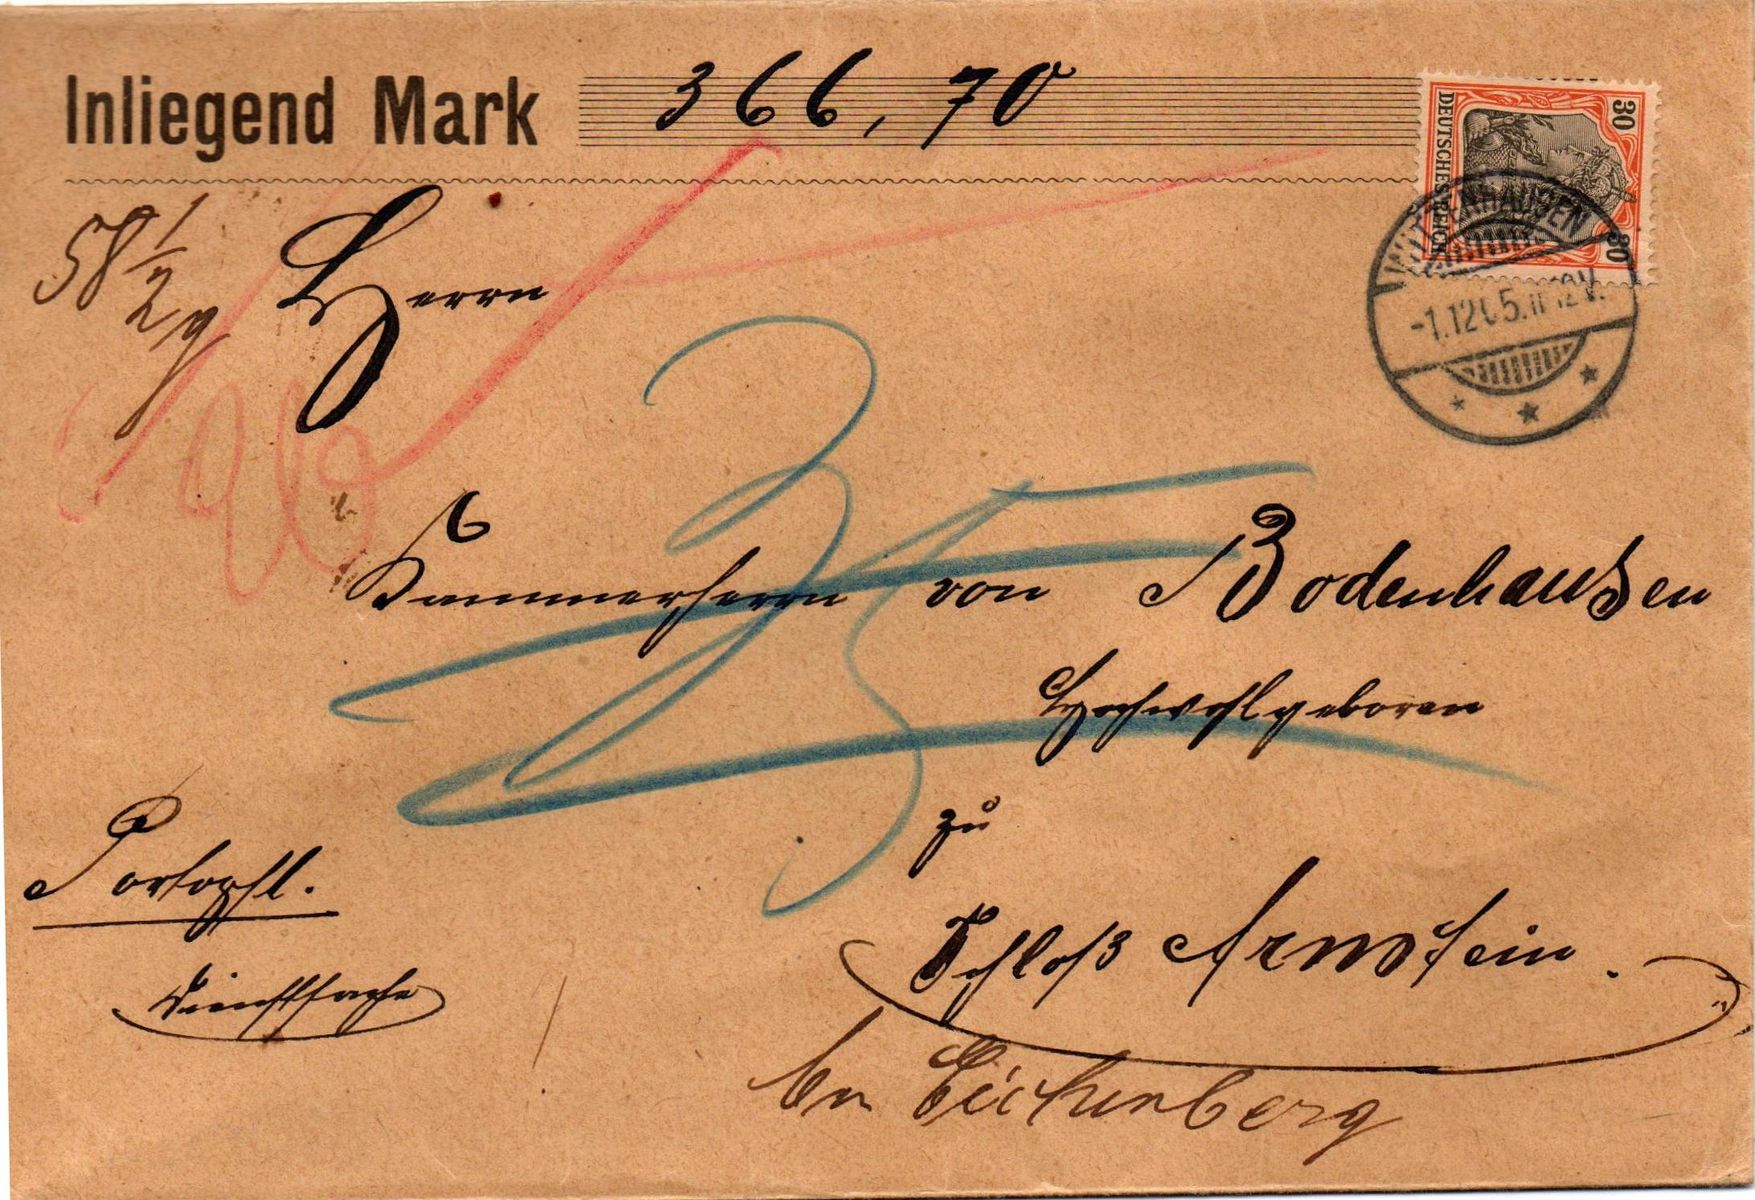 Inliegend Mark 366,70
30
DEUTSCHES REICH
30
WITZENHAUSEN
-1.12.05.11-12V.
58 1/2 g
Herrn
35
Kammerherrn von Bodenhausen
Hochwohlgeboren
zu
Portopfl.
Dienstsache
Schloß Arnstein.
bei Eichenberg